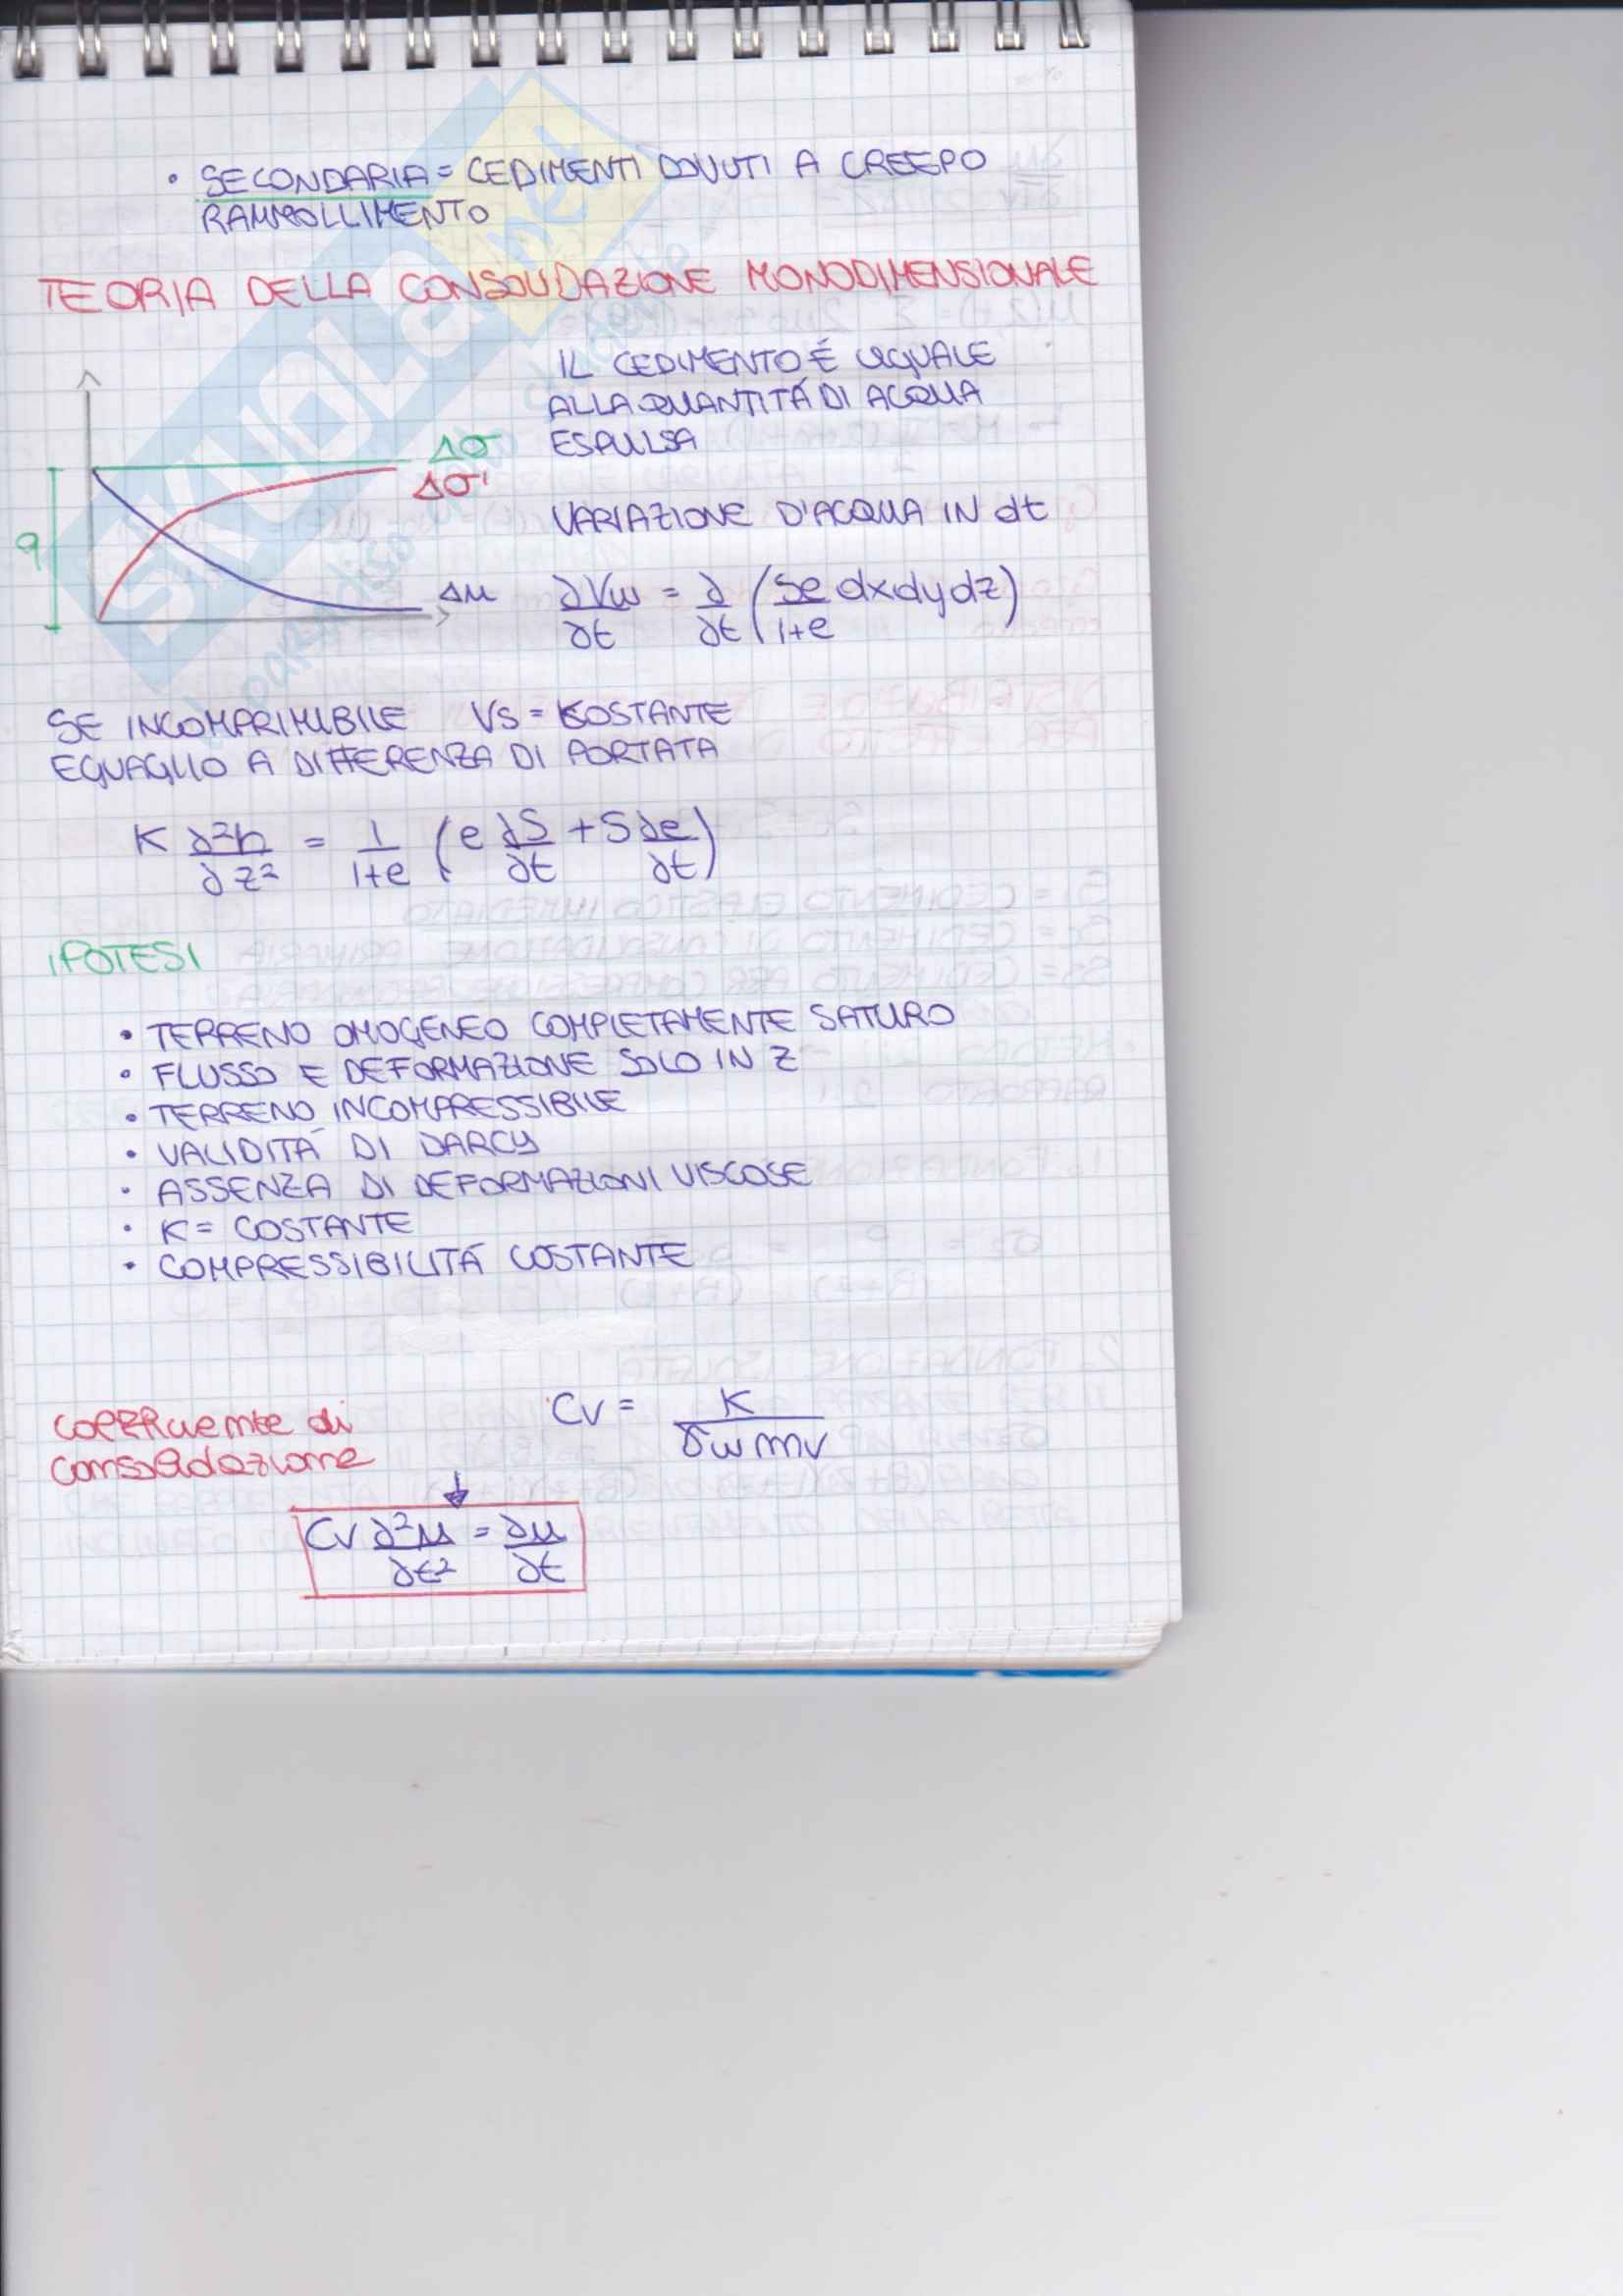 • SECONDARIA = CEDIMENTI DOVUTI A CREEP O
RAMMOLLIMENTO
TEORIA DELLA CONSOLIDAZIONE MONODIMENSIONALE
IL CEDIMENTO É UGUALE
ALLA QUANTITÁ DI ACQUA
ESPULSA
Δσ
Δσ'
q
Δu
VARIAZIONE D'ACQUA IN dt
∂Vw/∂t = ∂/∂t (Se/1+e dxdydz)
SE INCOMPRIMIBILE VS = COSTANTE
EGUAGLIO A DIFFERENZA DI PORTATA
K ∂²h/∂z² = 1/1+e (e ∂S/∂t + S ∂e/∂t)
IPOTESI
• TERRENO OMOGENEO COMPLETAMENTE SATURO
• FLUSSO E DEFORMAZIONE SOLO IN Z
• TERRENO INCOMPRESSIBILE
• VALIDITÁ DI DARCY
• ASSENZA DI DEFORMAZIONI VISCOSE
• K = COSTANTE
• COMPRESSIBILITÁ COSTANTE
coefficiente di
consolidazione
Cv = K/γw mv
Cv ∂²u/∂t² = ∂u/∂t
SKUOLA.net